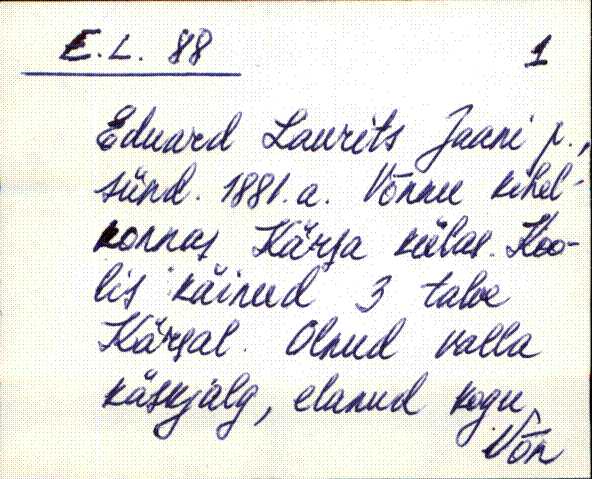 E.L. 88 1
Eduard Laurits Jaani p.,
sünd. 1881.a. Võnnu kihel-
konnas Kärsa külas. Koo-
lis käinud 3 talve
Kärsal. Olnud valla
käskjalg, elanud kogu
Võn